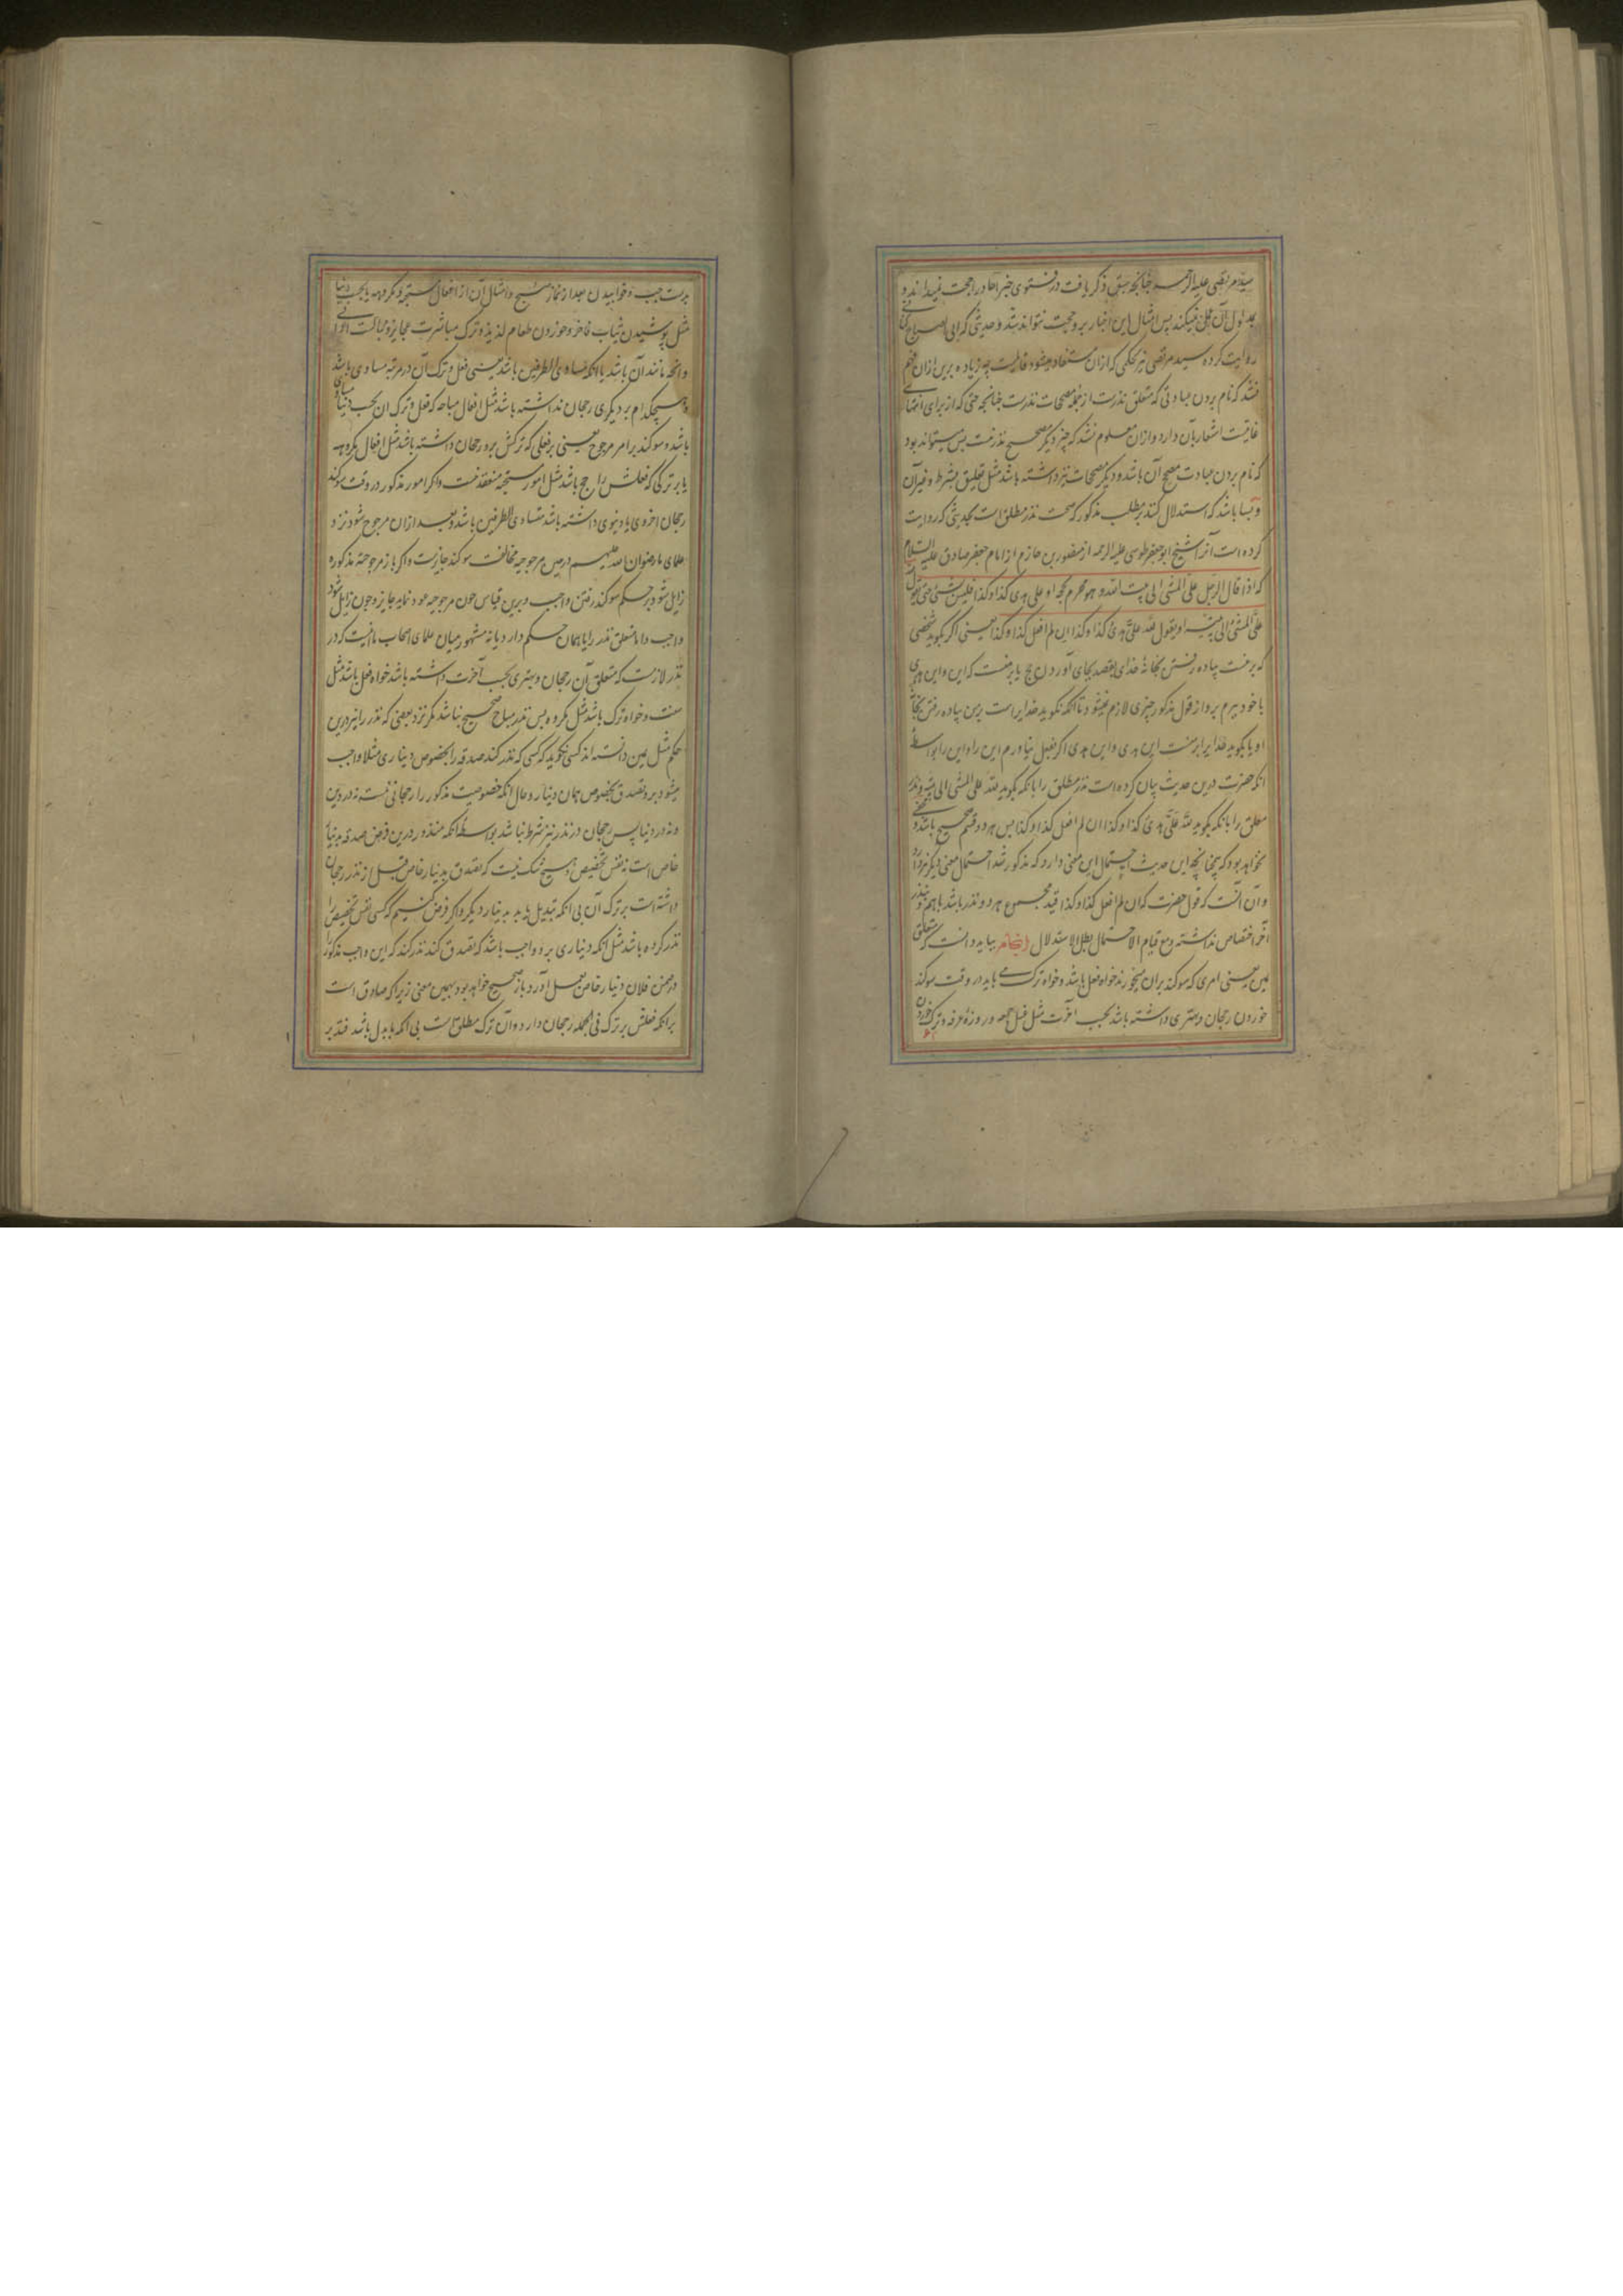 سید مرتضی علیه الرحمه چنانچه سبق ذکر یافت در فتوی خبر آحاد را حجت نمیداند و
بمدلول آن عمل نمیکند پس امثال این اخبار برو حجت نتواند شد و حدیثی که ابی الصباح کنانی
روایت کرده سید مرتضی نیز بحکمی که ازان مستفاد میشود قایلست چه زیاده برین ازان فهم
نشد که نام بردن عبادتی که متعلق نذرست از جمله مصححات نذرست چنانچه حتی که از برای انتهای
غایتست اشعار بآن دارد و ازان معلوم نشد که چیز دیگر مصحح نذر نیست پس میتواند بود
که نام بردن عبادت مصحح آن باشد و دیگر مصححات نیز داشته باشد مثل تعلیق بشرط و غیر آن
و بسا باشد که استدلال کنند بر مطلب مذکور که صحت نذر مطلق است بحدیثی که روایت
کرده است آنرا شیخ ابو جعفر طوسی علیه الرحمه از منصور بن حازم از امام جعفر صادق علیه السلام
که اذا قال الرجل علی المشی الی بیت الله و هو محرم بحجه او علی هدی کذا و کذا فلیس بشئ حتی یقول
لله علی المشی الی بیته او یقول لله علی هدی کذا و کذا ان لم افعل کذا و کذا یعنی اگر بگوید شخصی
که بر منست پیاده رفتن بخانهٔ خدای بقصد بجای آوردن حج یا بر منست که این و این هدی
با خود ببرم برو از قول مذکور چیزی لازم نمیشود تا آنکه نگوید خدایراست بر من پیاده رفتن بخانهٔ
او یا بگوید خدایرا بر منست این هدی و این هدی اگر بفعل نیاورم این را و این را بواسطهٔ
آنکه حضرت درین حدیث بیان کرده است نذر مطلق را بآنکه بگوید لله علی المشی الی بیته و نذر
معلق را بآنکه بگوید لله علی هدی کذا و کذا ان لم افعل کذا و کذا پس هر دو قسم صحیح باشد و مخفی
نخواهد بود که همچنانچه این حدیث احتمال این معنی دارد که مذکور شد احتمال معنی دیگر نیز دارد
و آن آنست که قول حضرت که ان لم افعل کذا و کذا قید مجموع هر دو نذر باشد باهم و بنذر
آخر اختصاص نداشته و مع قیام الاحتمال بطل الاستدلال بباید دانست که متعلق
یمین یعنی امری که سوکند بران میخورند خواه فعل باشد و خواه ترک می باید در وقت سوکند
خوردن رجحان و بهتری داشته باشد بحسب آخرت مثل غسل جمعه و روزهٔ عرفه و ترک خوردن
بدست چپ و خوابیدن بعد از نماز صبح و امثال آن از افعال مستحبه و مکروهه یا بحسب دنیا
مثل پوشیدن ثیاب فاخر و خوردن طعام لذیذ و ترک مباشرت عجایز و مباکت
و آنچه مانند آن باشد یا آنکه متساوی الطرفین باشد یعنی فعل و ترک آن در مرتبه مساوی باشد
و هیچکدام بر دیگری رجحان نداشته باشد مثل افعال مباحه که فعل و ترک آن بحسب دنیا مساوی
باشد و سوکند بر امر مرجوح یعنی بر فعلی که ترکش برو رجحان داشته باشد مثل افعال مکروهه
یا بر ترکی که فعلش راجح باشد مثل امور مستحبه منعقد نیست و اگر امور مذکور در وقت سوکند
رجحان اخروی یا دنیوی داشته باشد یا متساوی الطرفین باشد و بعد ازان مرجوح شود نزد
علمای ما رضوان الله علیهم در حین مرجوحیه مخالفت سوکند جایزست و اگر باز مرجوحیة مذکوره
زایل شود بر حکم سوکند رفتن واجب و برین قیاس چون مرجوحیه عود نماید جایز و چون زایل شود
واجب و اما متعلق نذر را یا همان حکم دارد یا نه مشهور میان علمای اصحاب ما آنست که در
نذر لازمست که متعلق آن رجحان و بهتری بحسب آخرت داشته باشد خواه فعل باشد مثل
سنت و خواه ترک باشد مثل مکروه پس نذر مباح صحیح نباشد مگر نزد بعضی که نذر را نیز درین
حکم مثل یمین دانسته اند کسی نگوید که کسی که نذر کند صدقه را بخصوص دیناری مثلا واجب
میشود برو تصدق بخصوص همان دینار و حال آنکه خصوصیت مذکور را رجحانی نیست نه در دین
و نه در دنیا پس رجحان در نذر نیز شرط نباشد بواسطهٔ آنکه منذور درین فرض صدقه بدینار
خاص است نه نفس تخصیص و هیچ شک نیست که تصدق بدینار خاص قبل از نذر رجحان
داشته است بر ترک آن بی آنکه تبدیل یابد بدینار دیگر و اگر فرض کنیم که کسی نفس تخصیص را
نذر کرده باشد مثل آنکه دیناری برو واجب باشد که تصدق کند نذر کند که این واجب مذکور را
در ضمن فلان دینار خاص بعمل آورد باز صحیح خواهد بود بهمین معنی زیرا که صادق است
بر آنکه فعلش بر ترک فی الجمله رجحان دارد و آن ترک مطلق است بی آنکه با بدل باشد فتدبر